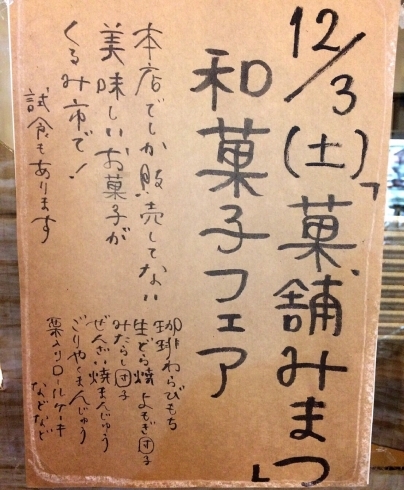 12/3(土)「菓舗みまつ」
和菓子フェア
本店でしか販売してない
美味しいお菓子が
くるみ市で!
試食もあります
珈琲わらびもち
生どら焼 よもぎ団子
みたらし団子
ぜんざい 焼まんじゅう
ごりやくまんじゅう
栗入りロールケーキ
などなど